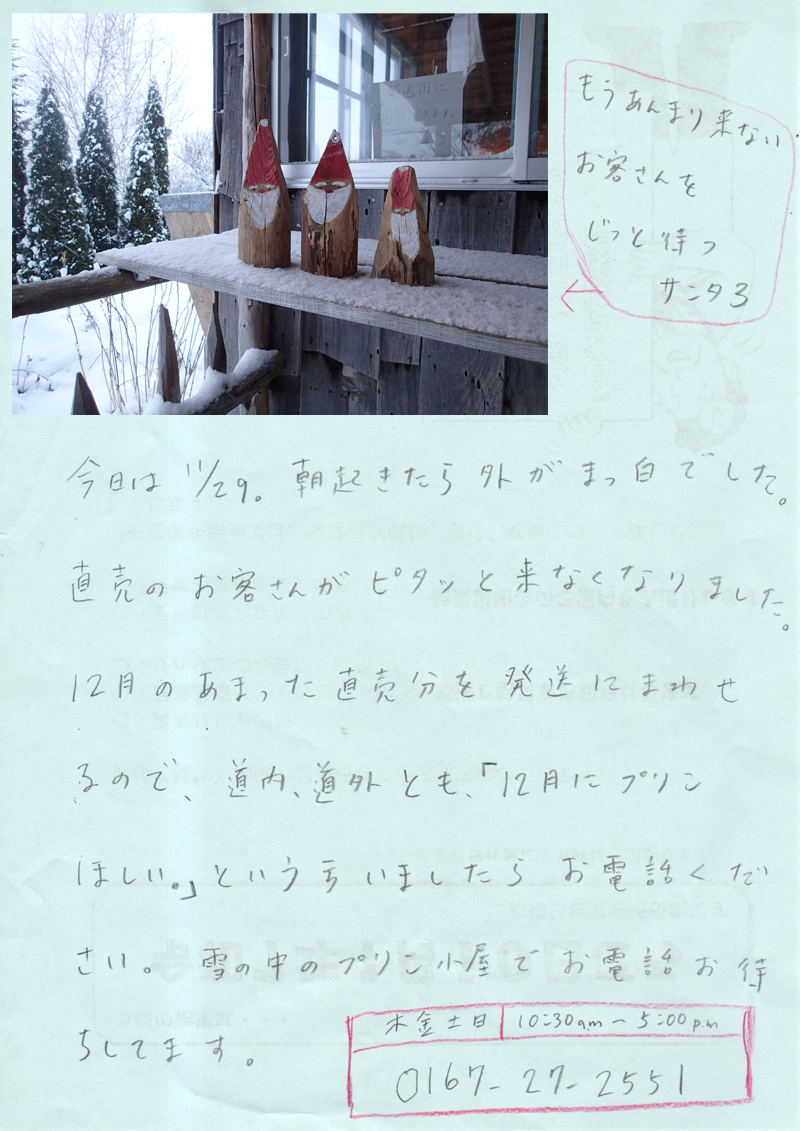 もうあんまり来ない
お客さんを
じっと待つ
サンタ3
今日は11/29。朝起きたら外がまっ白でした。
直売のお客さんがピタッと来なくなりました。
12月のあまった直売分を発送にまわせ
るので、道内、道外とも、「12月にプリン
ほしい。」という方いましたらお電話くだ
さい。雪の中のプリン小屋でお電話お待
ちしてます。
木金土日 10:30am〜5:00p.m
0167-27-2551